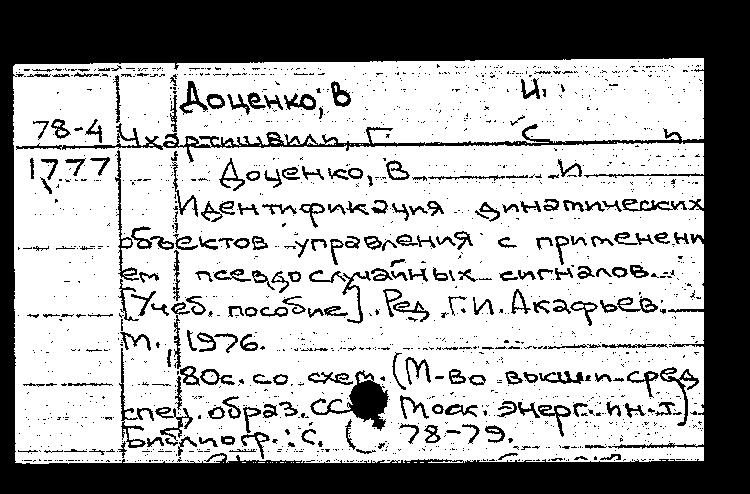 Доценко, В И.
78-4 Чхартишвили, Г С п
1777 Доценко, В И
Идентификация динамических
объектов управления с применени
ем псевдослучайных сигналов.
[Учеб. пособие]. Ред. Г.И. Акафьев.
М., 1976.
80с. со схем. (М-во высш. и сред
спец. образ. СС Моск. энерг. ин-т)
Библиогр.: с. 78-79.